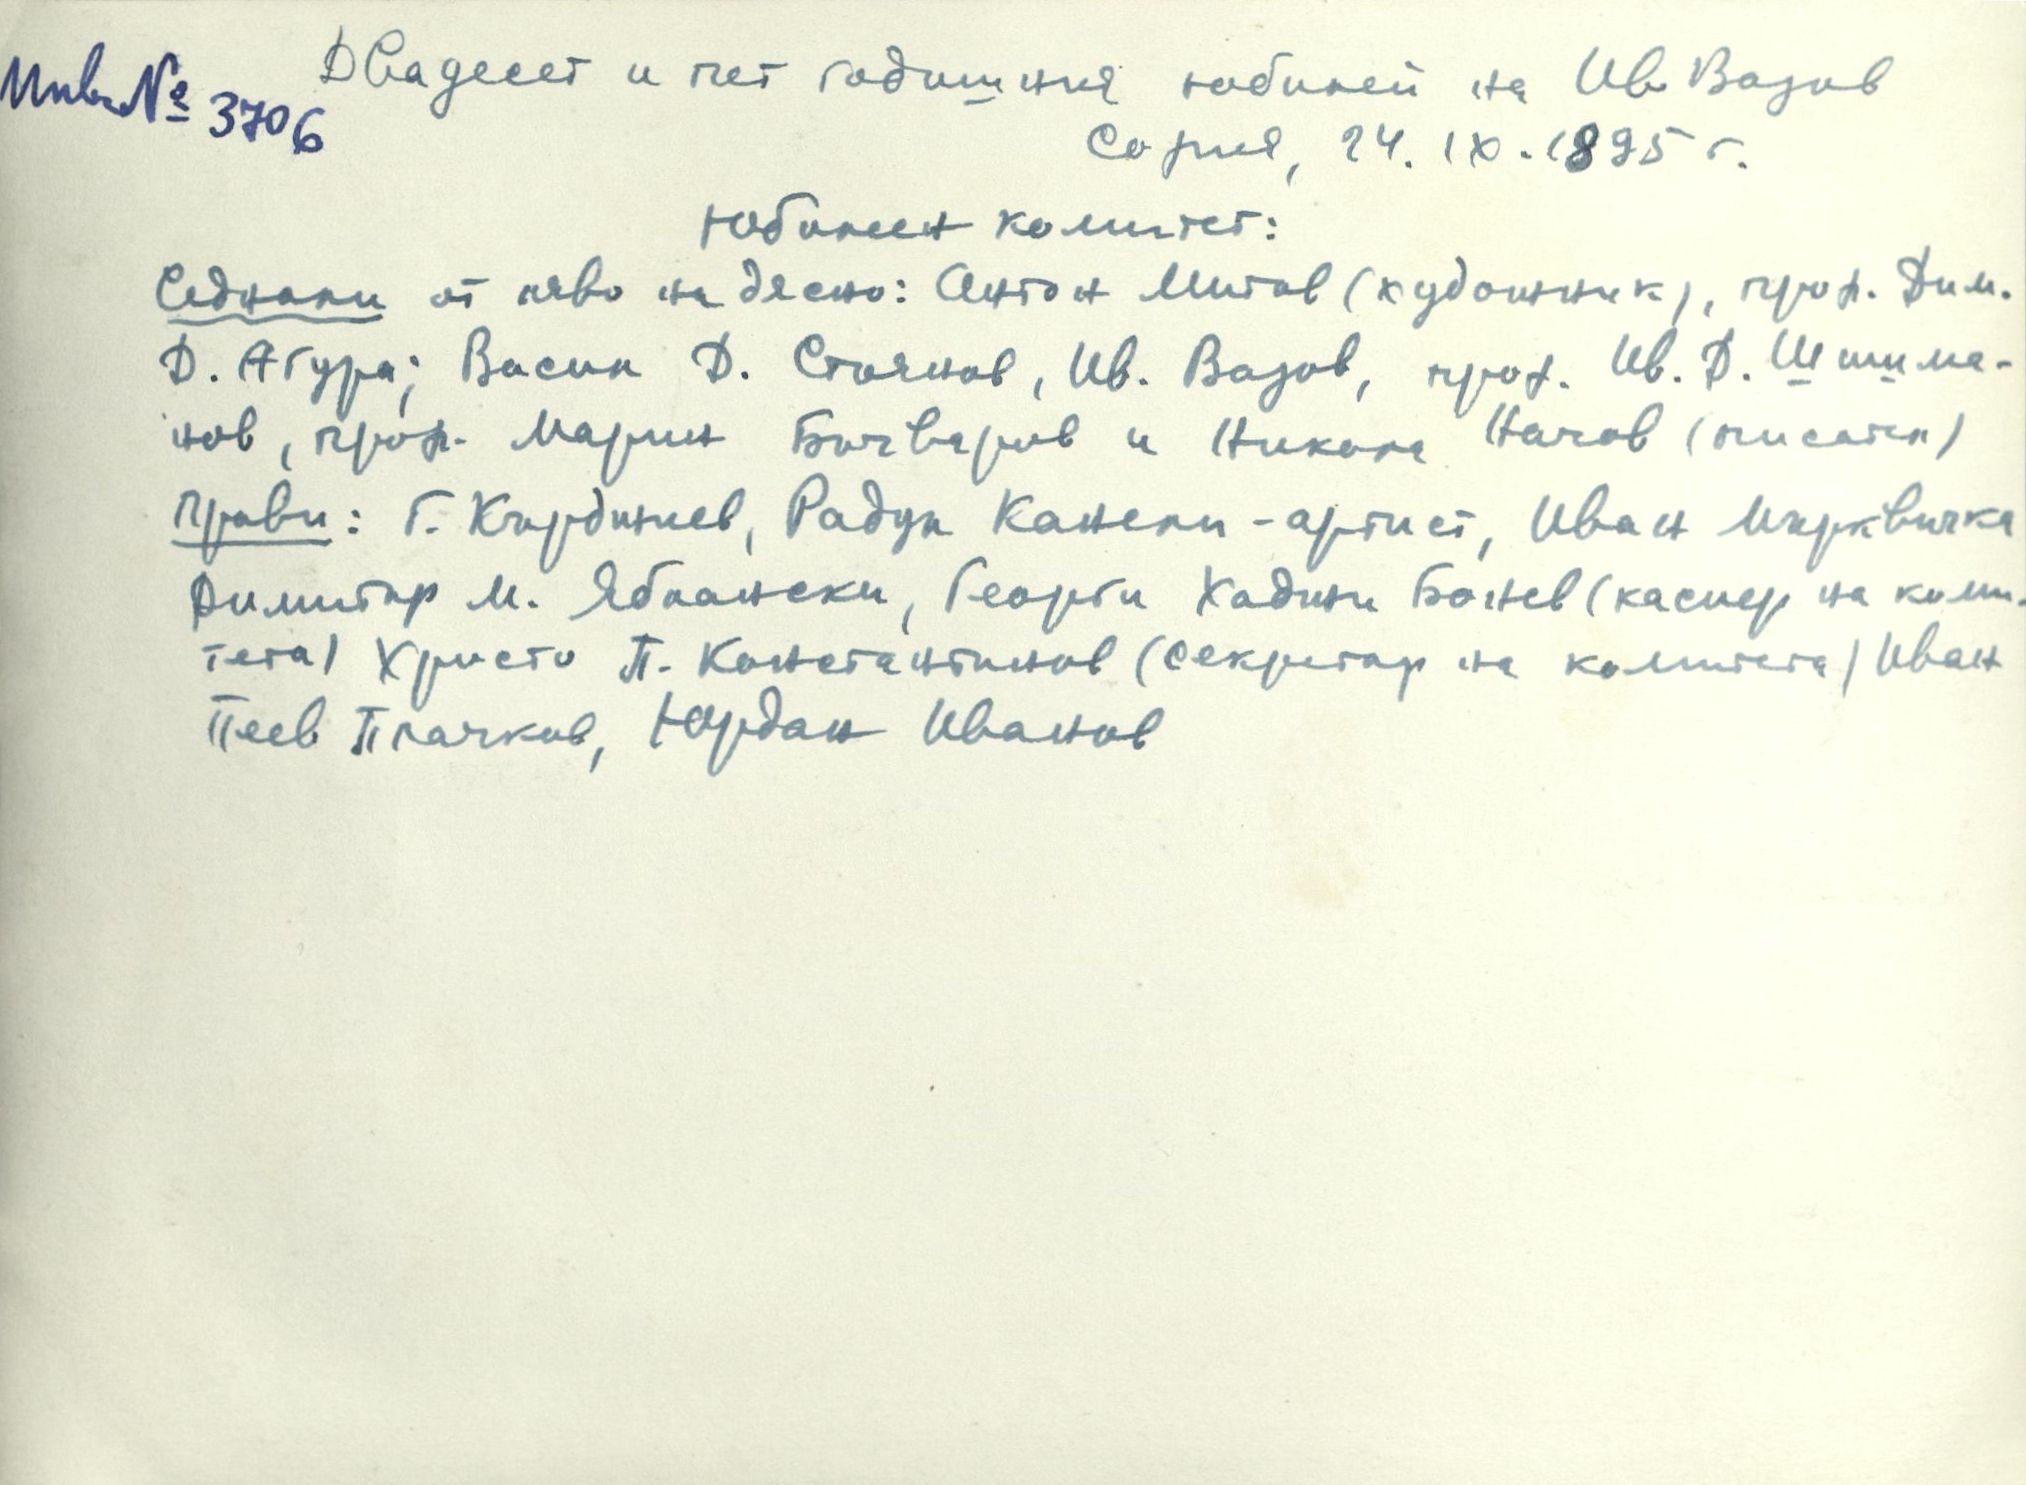 Инв. № 3706
Двадесет и пет годишния юбилей на Ив. Вазов
София, 24. IX. 1895 г.
Юбилеен комитет:
Седнали от ляво на дясно: Антон Митов (художник), проф. Дим.
Д. Агура; Васил Д. Стоянов, Ив. Вазов, проф. Ив. Д. Шишма-
нов, проф. Марин Бъчваров и Никола Начов (писател)
Прави: Г. Кърджиев, Радул Канели - артист, Иван Мърквичка
Димитър М. Яблански, Георги Хаджи Бонев (касиер на коми-
тета) Христо П. Константинов (секретар на комитета) Иван
Пеев Плачков, Юрдан Иванов